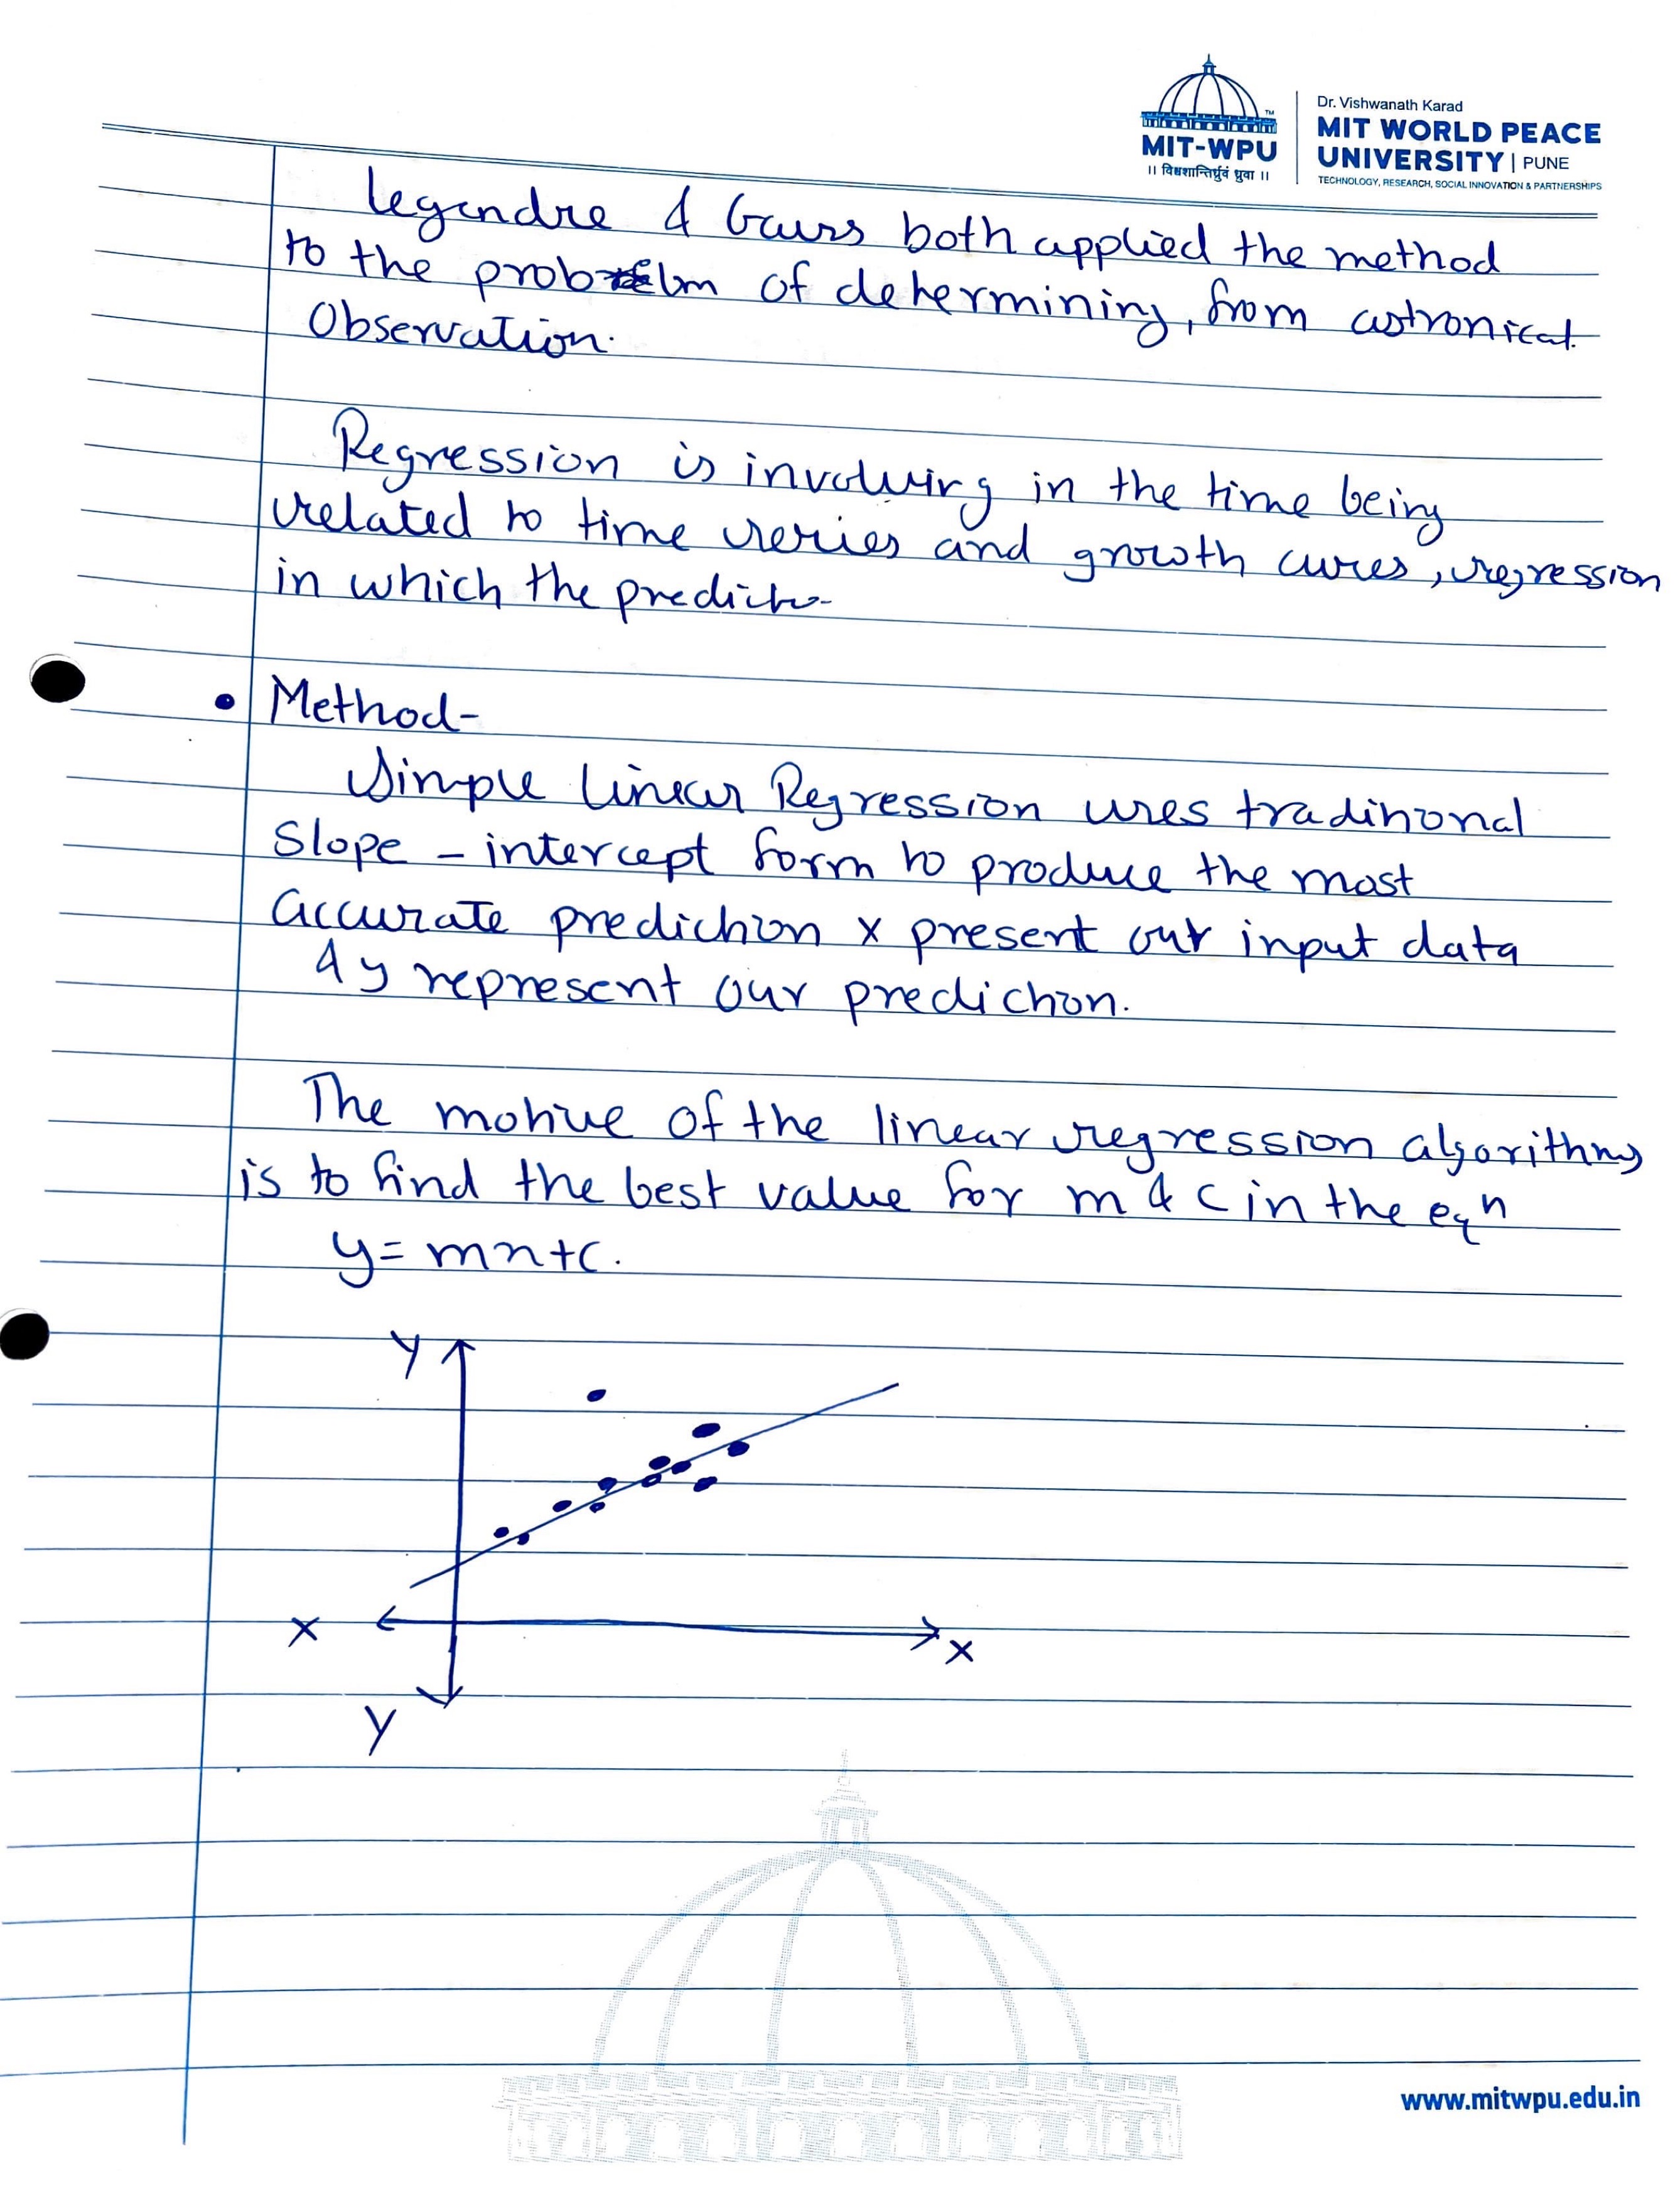 Dr. Vishwanath Karad
MIT WORLD PEACE
UNIVERSITY | PUNE
TECHNOLOGY, RESEARCH, SOCIAL INNOVATION & PARTNERSHIPS
MIT-WPU
TM
॥ विश्वशान्तिर्ध्रुवं ध्रुवा ॥
Legendre & Gauss both applied the method
to the problem of determining, from astronical
Observation.
Regression is involving in the time being
related to time series and growth cures, regression
in which the predicto-
• Method-
Simple linear Regression uses traditional
Slope - intercept form to produce the most
accurate prediction x present our input data
& y represent our prediction.
The motive of the linear regression algorithms
is to find the best value for m & c in the eqn
y = mx+c.
Y
X
X
Y
www.mitwpu.edu.in